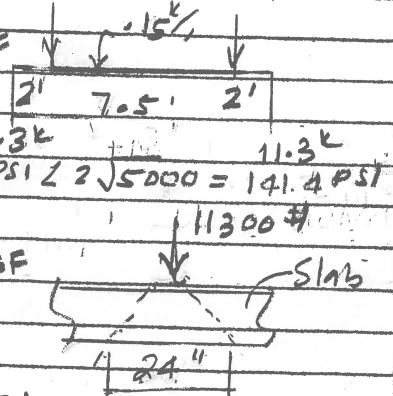 .15k/,
2' 7.5' 2'
.3k 11.3k
PSI < 2√5000 = 141.4 PSI
11300 #
SF
Slab
24"